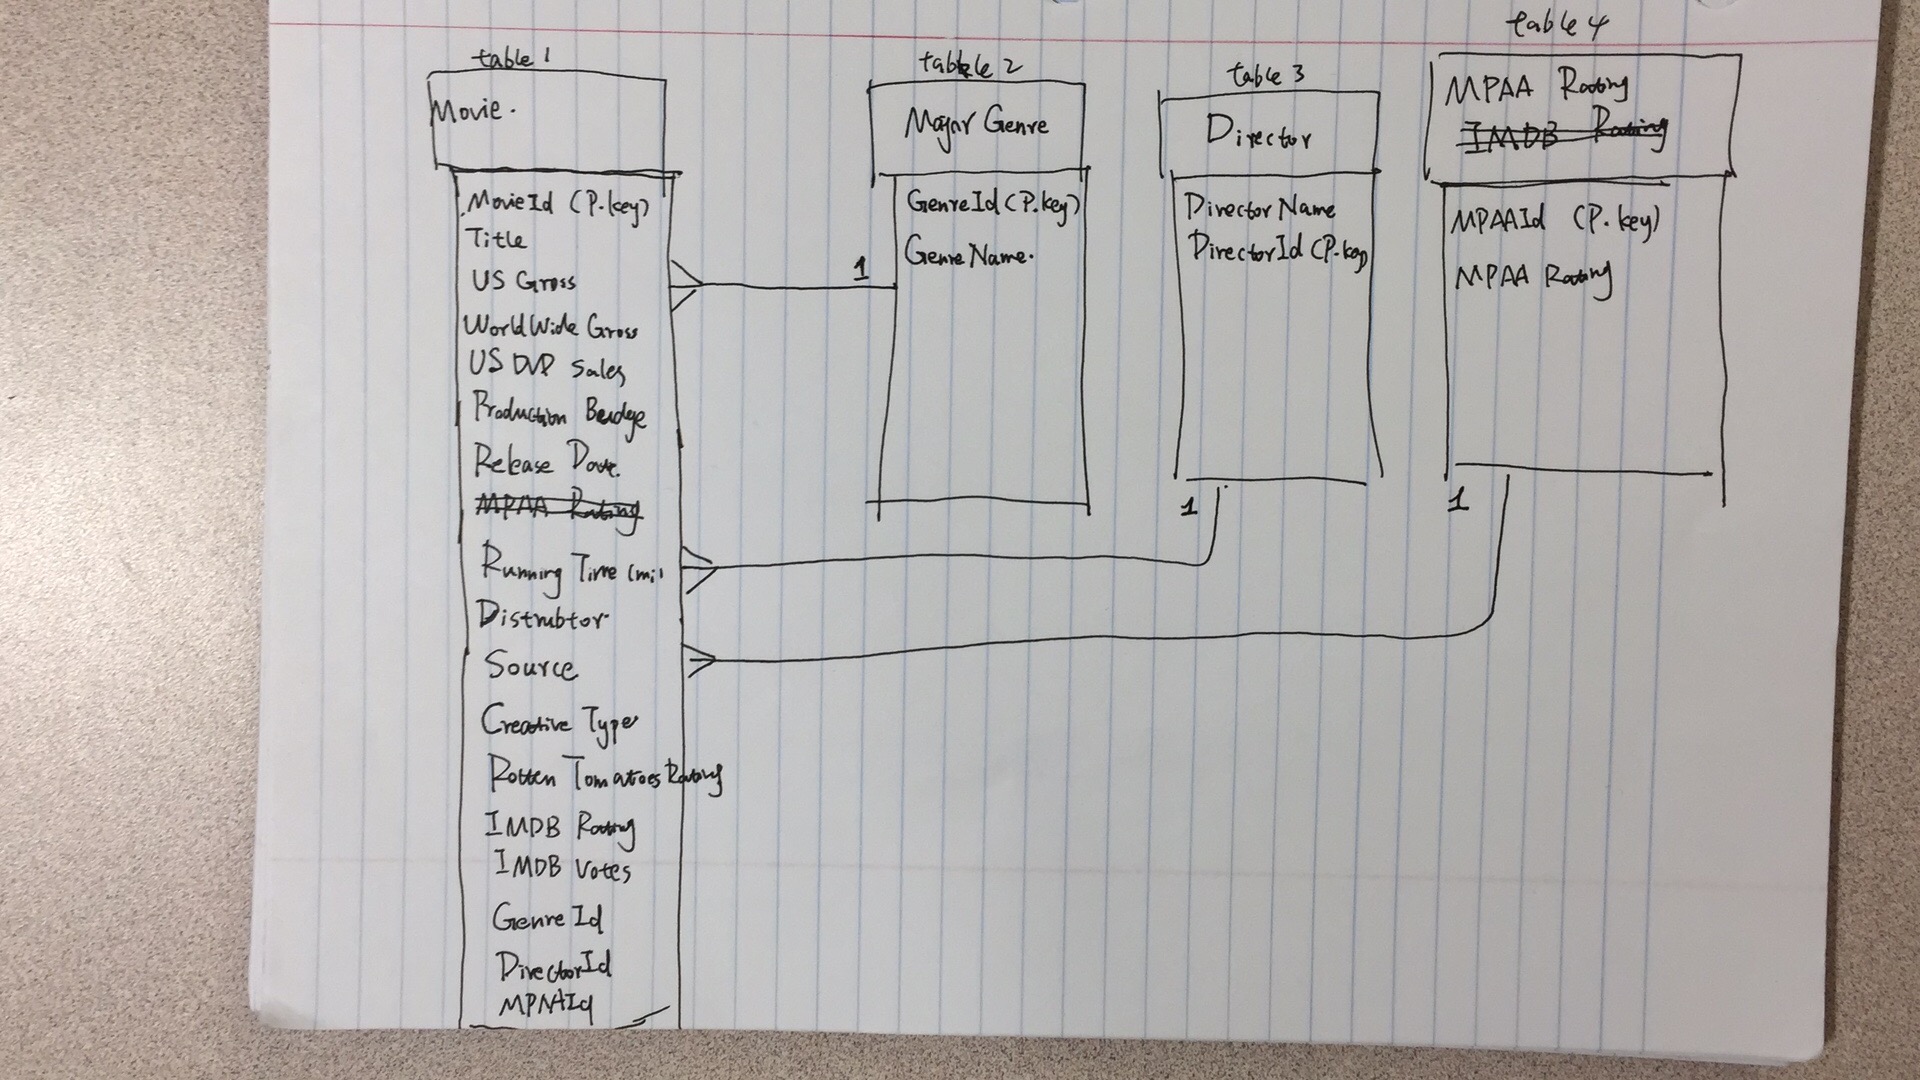 table 1
Movie.
MovieId (P.key)
Title
US Gross
WorldWide Gross
US DVD Sales
Production Beudge
Release Date.
MPAA Rating
Running Time (mi
Distrubtor
Source
Creative Type
Rotten Tomatoes Rating
IMDB Rating
IMDB Votes
Genre Id
DirectorId
MPAAId
table 2
Major Genre
GenreId (P.key)
GenreName.
1
table 3
Director
Director Name
DirectorId (P.key)
1
table 4
MPAA Rating
IMDB Rating
MPAAId (P.key)
MPAA Rating
1